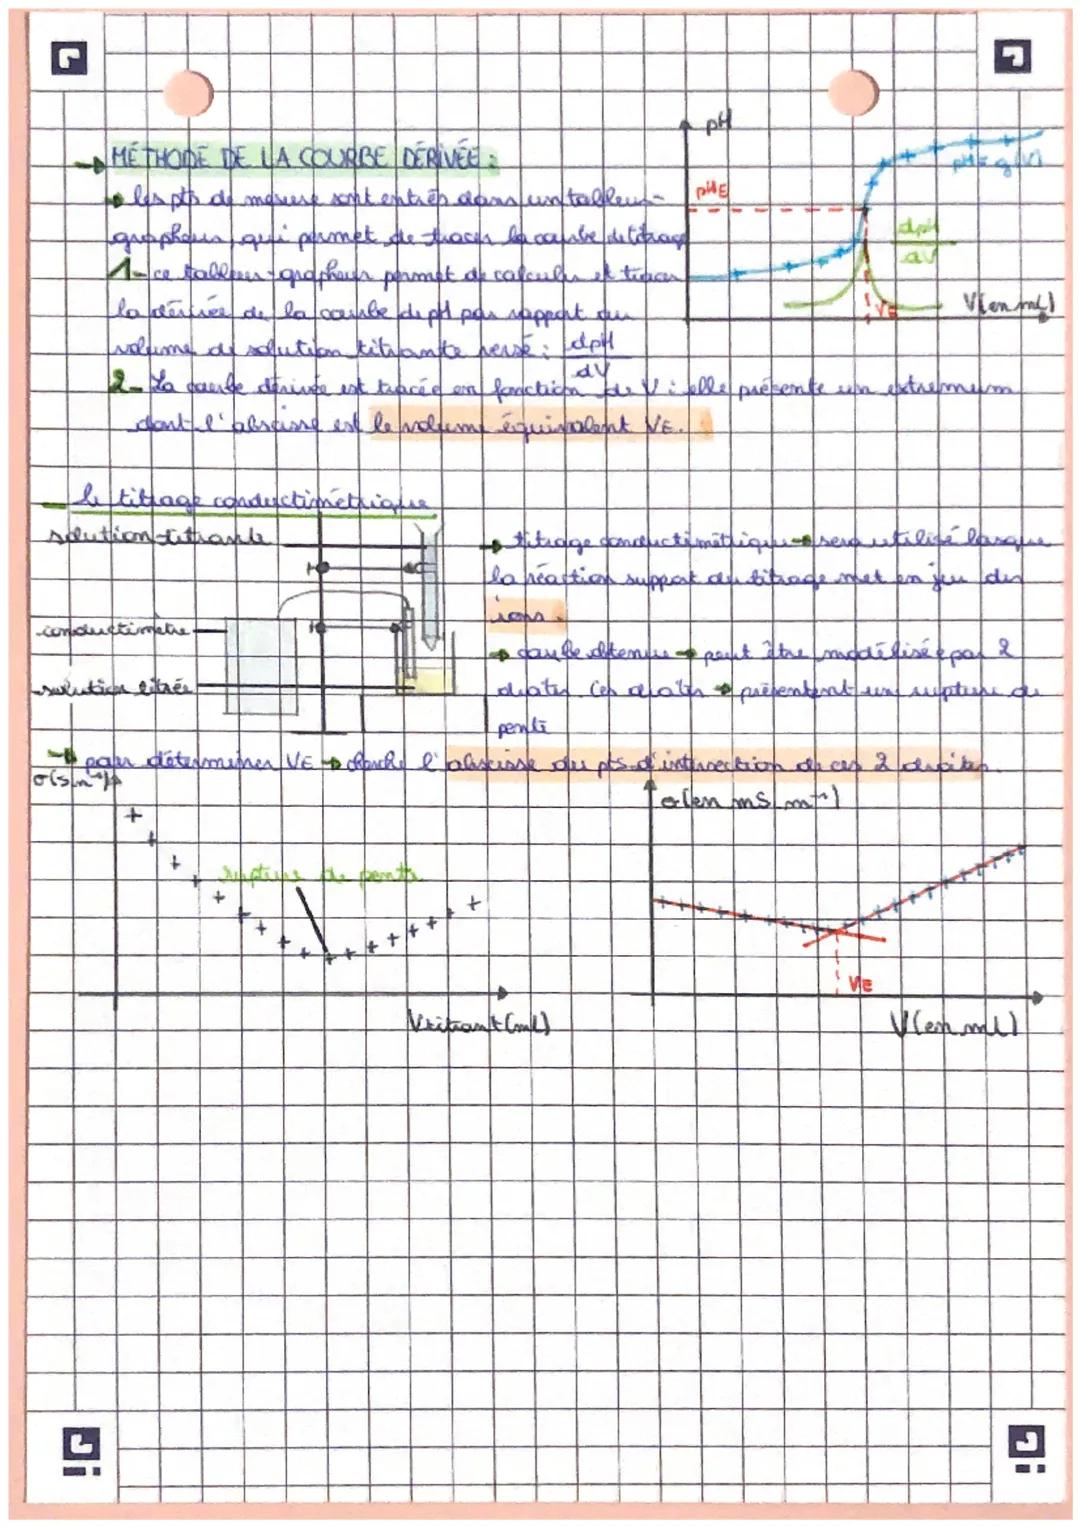 → MÉTHODE DE LA COURBE DÉRIVÉE :
→ les pts de mesure sont entrés dans un tableur-
grapheur, qui permet de tracer la courbe de titrage
1- ce tableur-grapheur permet de calculer et tracer
la dérivée de la courbe de pH par rapport au
volume de solution titrante versé : dpH
dV
2- La courbe dérivée est tracée en fonction de V : elle présente un extremum
dont l'abscisse est le volume équivalent VE.
pH
pHE
pH = g(V)
dpH
dV
VE
V(en mL)
- le titrage conductimétrique
solution titrante
conductimètre
solution titrée
→ titrage conductimétrique → sera utilisé lorsque
la réaction support du titrage met en jeu des
ions.
→ courbe obtenue → peut être modélisée par 2
droites. Ces droites → présentent un rupture de
pente
→ pour déterminer VE → cherche l'abscisse du pts d'intersection de ces 2 droites.
σ(S.m⁻¹)
rupture de pente
Vtitrant (mL)
σ(en mS.m⁻¹)
VE
V(en mL)